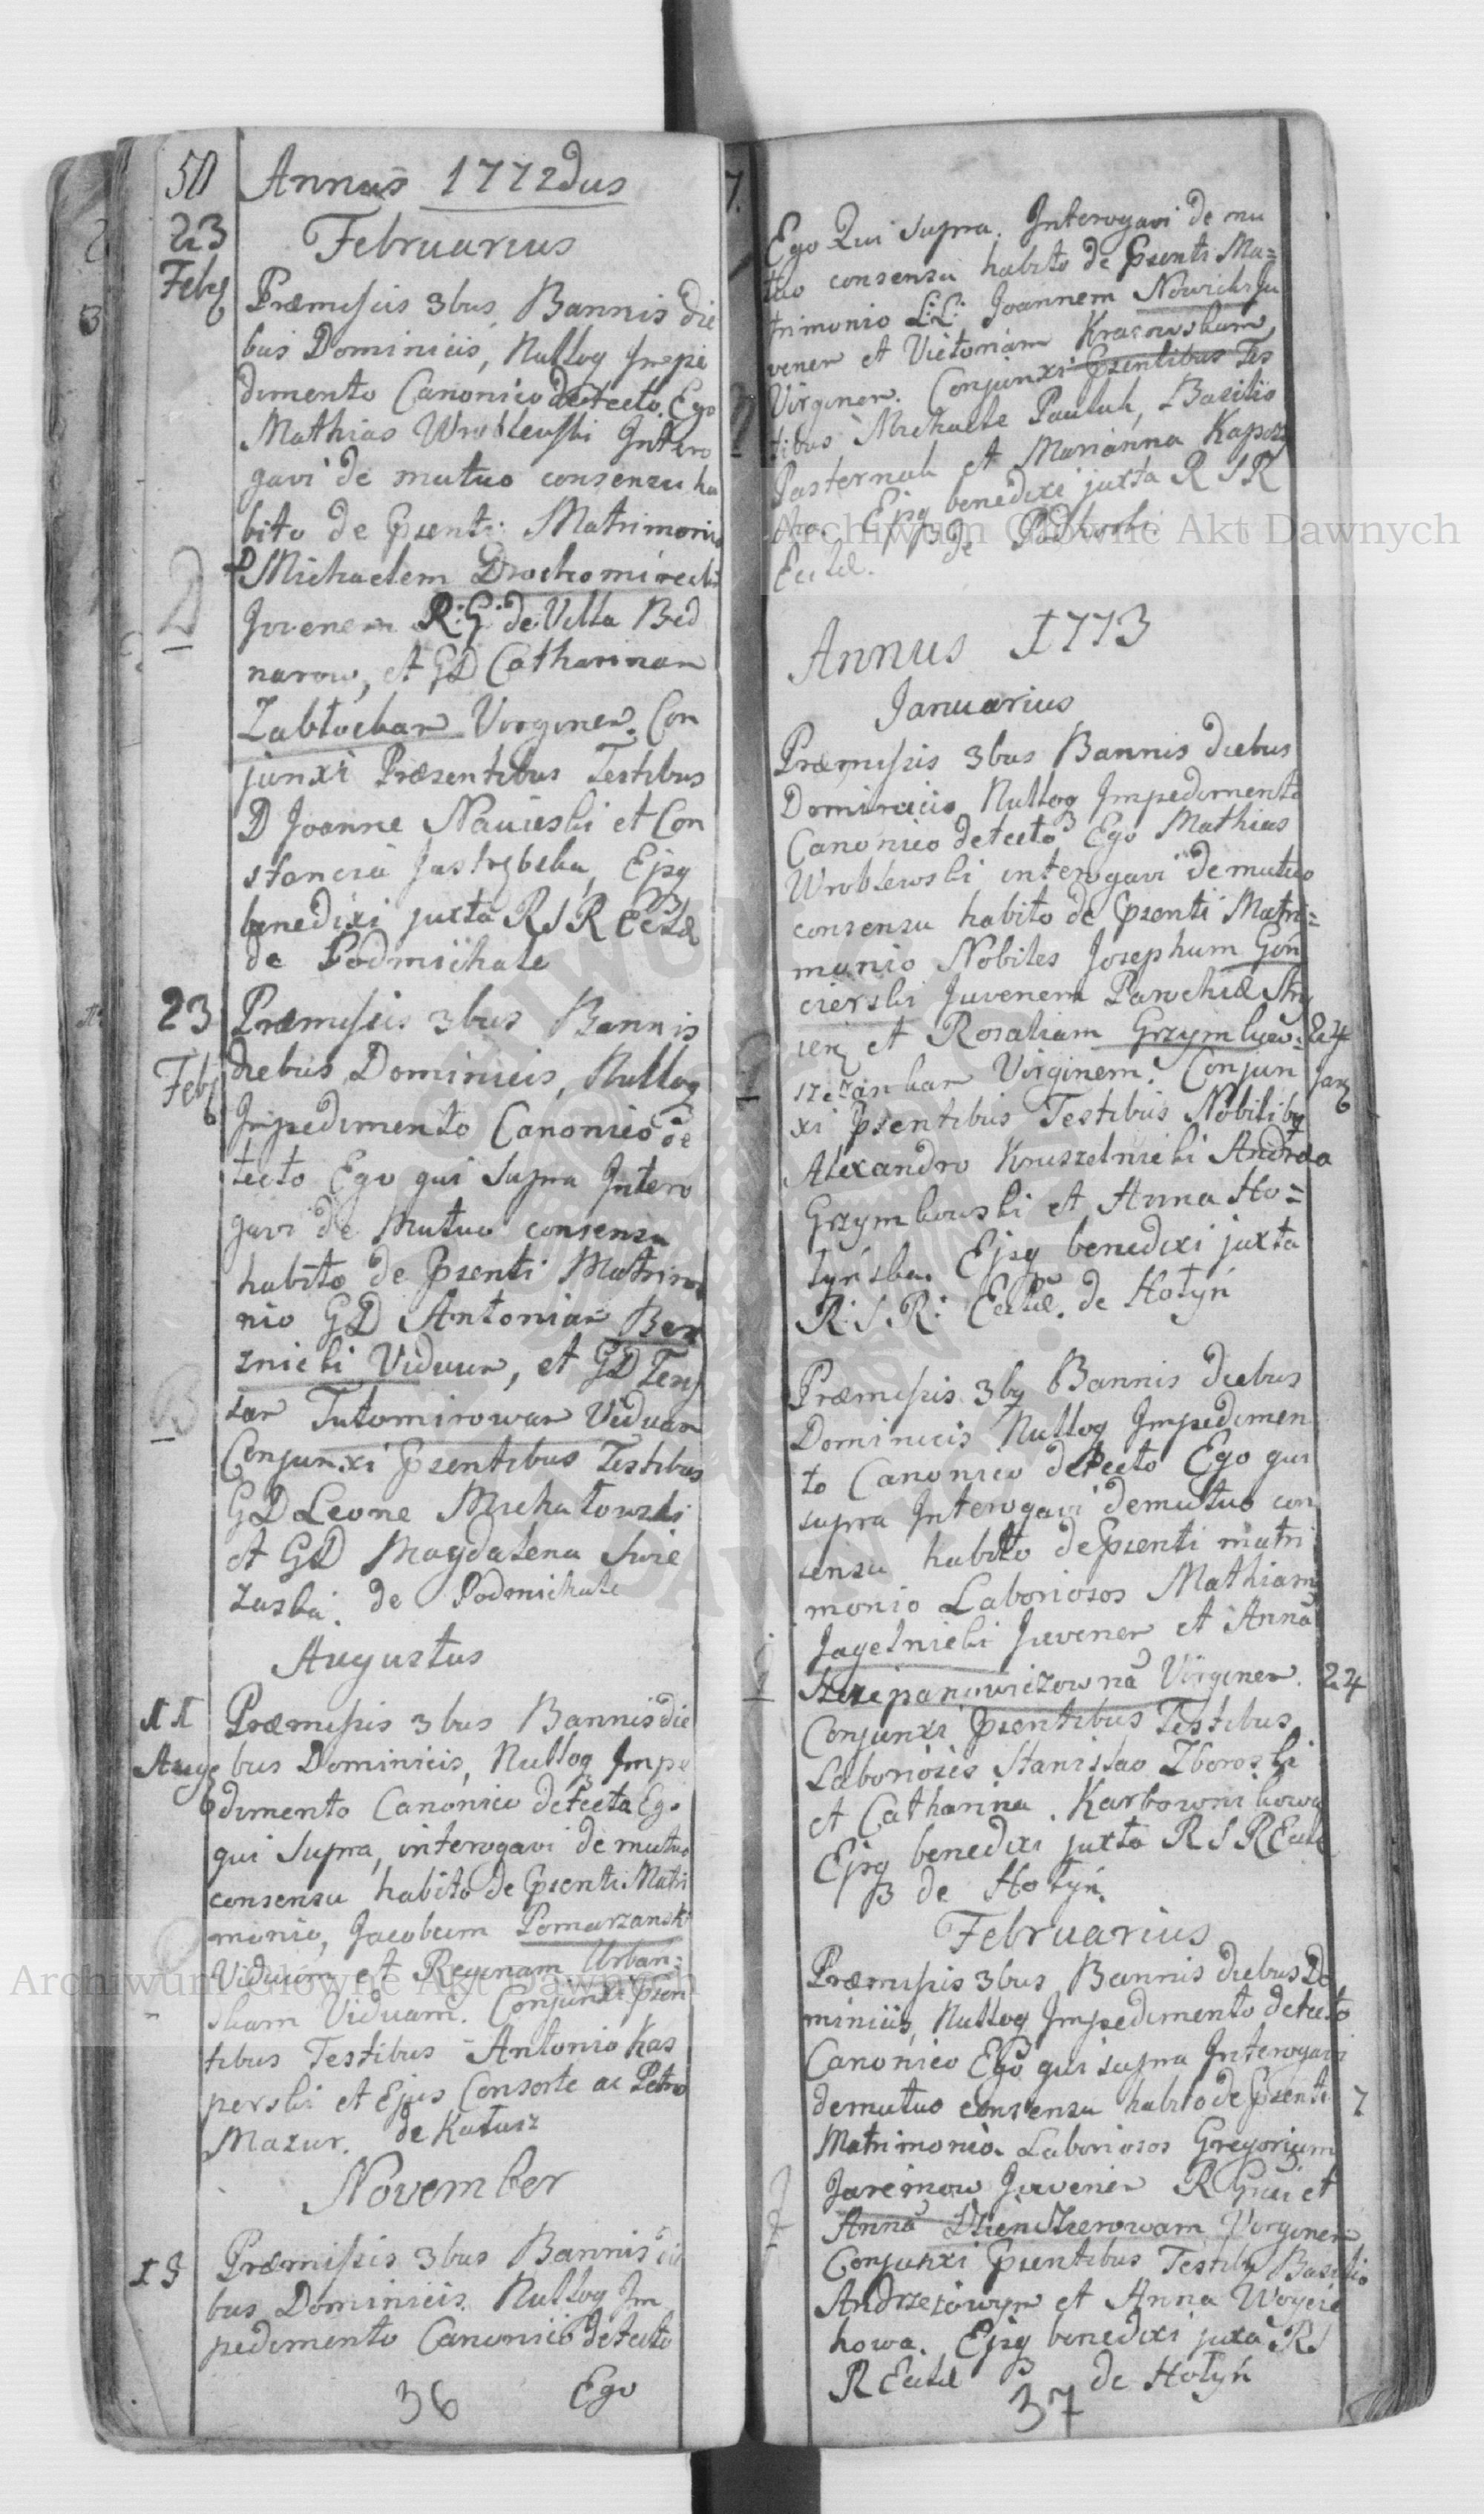 50 Annus 1772dus
23 Februarius
Febr
Præmissis 3bus Bannis die
bus Dominicis, Nulloq Impe
dimento Canonico detecto. Ego
Mathias Wroblewski Intero
gavi de mutuo consensu ha
bito de Psenti Matrimonio
Michaelem Drohomirecki
Juvenem R: G: de Villa Bed
narow, et GD Catharinam
Zabłockam Virginem. Con
junxi Præsentibus Testibus
D Joanne Nawieski et Con
stancia Jastrzbska, Ejsq
benedixi juxta R S R Eccl
de Podmichale
23 Præmissis 3bus Bannis
Feb diebus Dominicis, Nulloq
Impedimento Canonico de
tecto Ego qui supra Intero
gavi de Mutuo consensu
habito de Psenti Matrimo
nio GD Antonium
Viduum, et GD Tere
sam Tutomirowam Viduam
Conjunxi Psentibus Testibus
GD Leone Michałowski
et GD Magdalena Swie
zaska. de Podmichale
Augustus
11 Præmissis 3bus Bannis die
Aug bus Dominicis, Nulloq Impe
dimento Canonico detecta Ego
qui supra, interogavi de mutuo
consensu habito de Psenti Matri
monio, Jacobum Pomarzanski
Viduum et Reginam Urban=
skam Viduam. Conjunxi Psen
tibus Testibus Antonio Kas
perski et Ejus Consorte ac Petro
Mazur. de Kałusz
November
18 Præmissis 3bus Bannis die
bus Dominicis. Nulloq Im
pedimento Canonico detecto
36 Ego
7.
Ego Qui supra. Interogavi de mu
tuo consensu habito de Psenti Ma=
trimonio L:L: Joannem Nowicki Ju
venem et Victoriam Kracowskam
Virginem. Conjunxi Psentibus Tes
tibus Michaele Pauluk, Basilio
Pasternak et Marianna
Ejsq benedixi juxta R S R
Eccl. de
Annus 1773
Januarius
Præmissis 3bus Bannis diebus
Dominicis Nulloq Impedimento
Canonico detecto Ego Mathias
Wroblewski interogavi de mutuo
consensu habito de Psenti Matri=
monio Nobiles Josephum Gon
cierski Juvenem Parochiæ Stry
et Rosaliam 24
Virginem. Conjun Jan
xi Psentibus Testibus Nobilibq
Alexandro Kruszelnicki Andrea
Grzymkowski et Anna Ho=
tynska. Ejsq benedixi juxta
R: S: R: Eccl. de Hołyń
Præmissis 3bq Bannis diebus
Dominicis Nulloq Impedimen
to Canonico detecto Ego qui
supra Interogavi de mutuo con
sensu habito de Psenti matri
monio Laboriosos Mathiam
Jagelnicki Juvenem et Annã
Szczepanowiczownã Virginem. 24
Conjunxi Psentibus Testibus
Laboriosis Stanislao Zboroski
et Catharina Karbownikowa
Ejsq benedixi juxta R S R Eccl
de Hołyń.
Februarius
Præmissis 3bus Bannis diebus Do
minicis, Nulloq Impedimento detecto
Canonico Ego qui supra Interogavi
de mutuo consensu habito de Psenti 7
Matrimonio Laboriosos Gregorium
Jaremow Juvenem R Græci et
Annã Virginem
Conjunxi Psentibus Testibq Basilio
Andrzejowym et Anna Woycie
howa. Ejsq benedixi juxta R S
R Eccl de Hołyń
37
Archiwum Główne Akt Dawnych
Archiwum Główne Akt Dawnych